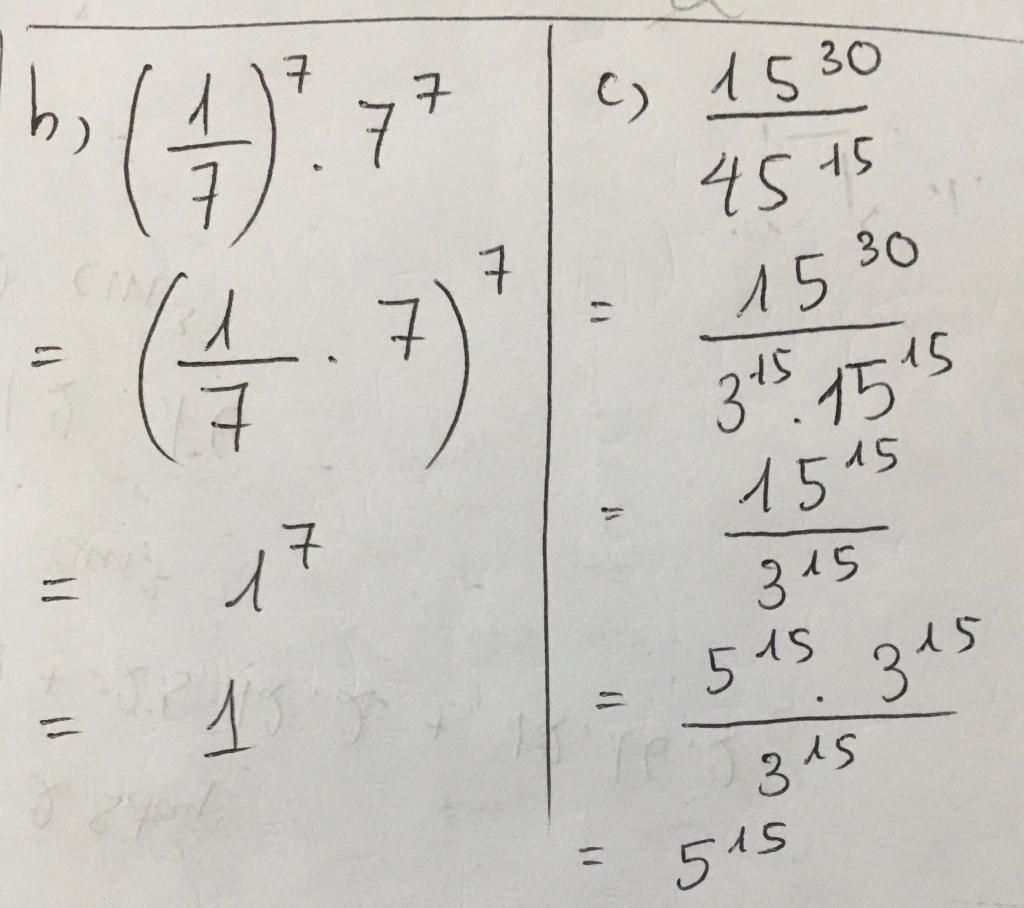 b) (1/7)^7 . 7^7
= (1/7 . 7)^7
= 1^7
= 1
c) 15^30 / 45^15
= 15^30 / 3^15 . 15^15
= 15^15 / 3^15
= 5^15 . 3^15 / 3^15
= 5^15